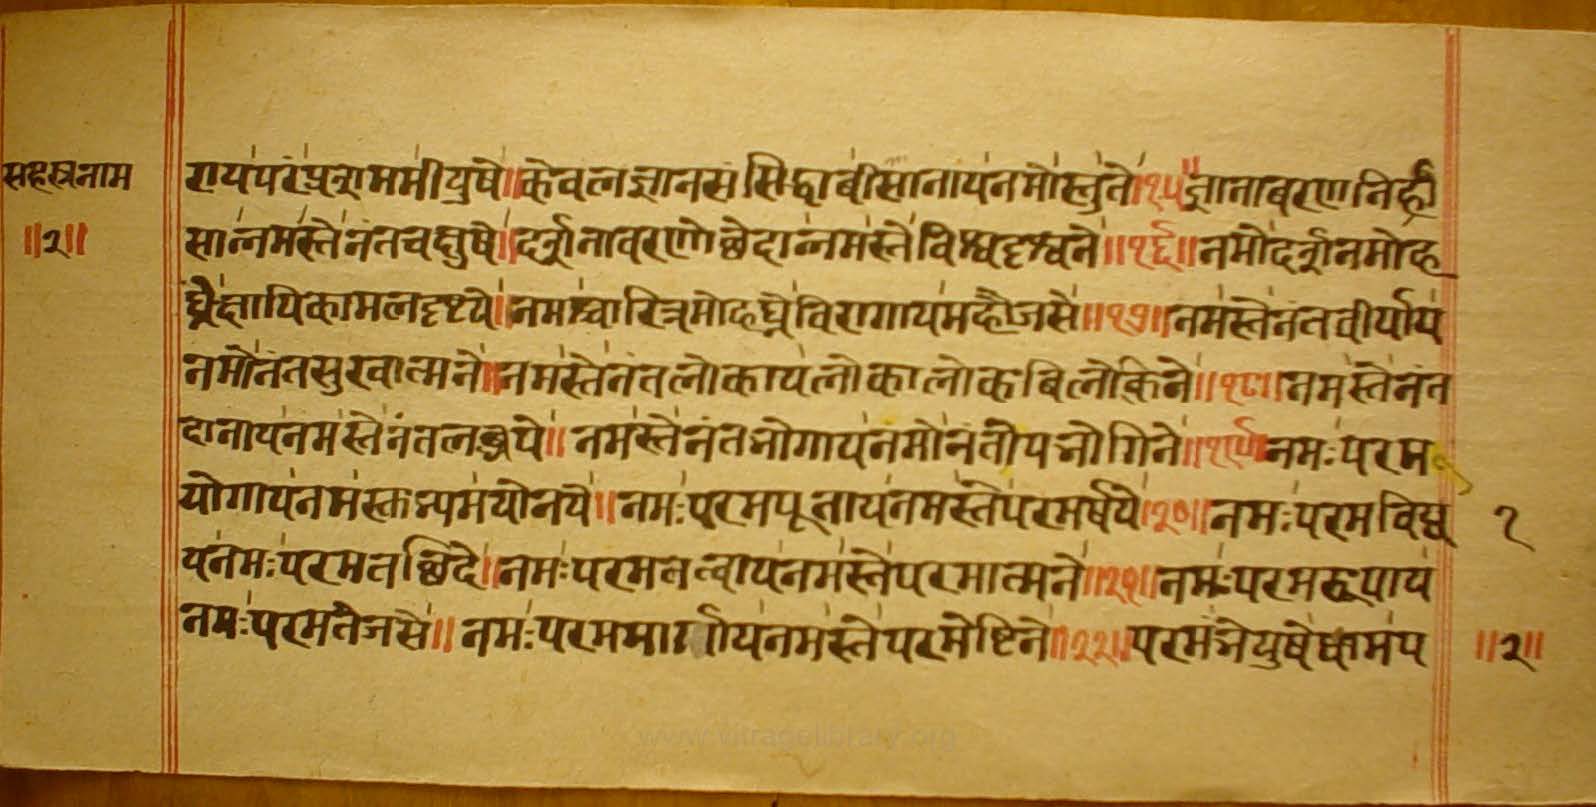 सहस्रनाम
॥२॥
राय परं प्रशममीयुषे॥ केवलज्ञानसंसिद्धाबीसानाय नमोस्तु ते॥१५॥ ज्ञानावरणनिर्ह्रा
सान्नमस्तेनंतचक्षुषे॥ दर्शनावरणोछेदान्नमस्ते विश्वदृश्वने॥१६॥ नमो दर्शनमोह
घ्ने क्षायिकामलदृष्टये॥ नमश्चारित्रमोहघ्ने विरागाय महौजसे॥१७॥ नमस्तेनंतवीर्याय
नमोनंतसुखात्मने॥ नमस्तेनंतलोकाय लोकालोकबिलोकिने॥१८॥ नमस्तेनंत
दानाय नमस्तेनंतलब्धये॥ नमस्तेनंतभोगाय नमोनंतोपभोगिने॥१९॥ नमः परम
योगाय नमस्तुभ्यमयोनये॥ नमः परमपूताय नमस्ते परमर्षये॥२०॥ नमः परमविद्या
य नमः परमतछिदे॥ नमः परमतत्वाय नमस्ते परमात्मने॥२१॥ नमः परमरूपाय
नमः परमतेजसे॥ नमः परममार्गाय नमस्ते परमेष्टिने॥२२॥ परमं भेयुषे धाम प
॥२॥
www.vitragelibrary.org